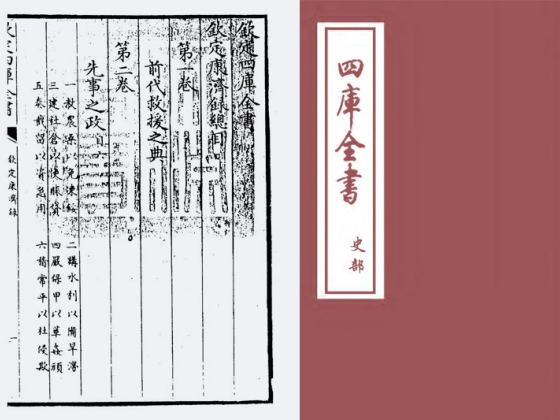 欽定四庫全書
欽定康濟録總目
第一卷
前代救援之典
第二卷
先事之政
一教農桑以免凍餒
二講水利以備旱澇
三建社倉以便賑貸
四嚴保甲以革奸頑
五奏截留以資急用
六請常平以杜侵欺
欽定四庫全書
欽定康濟録
四庫全書
史部